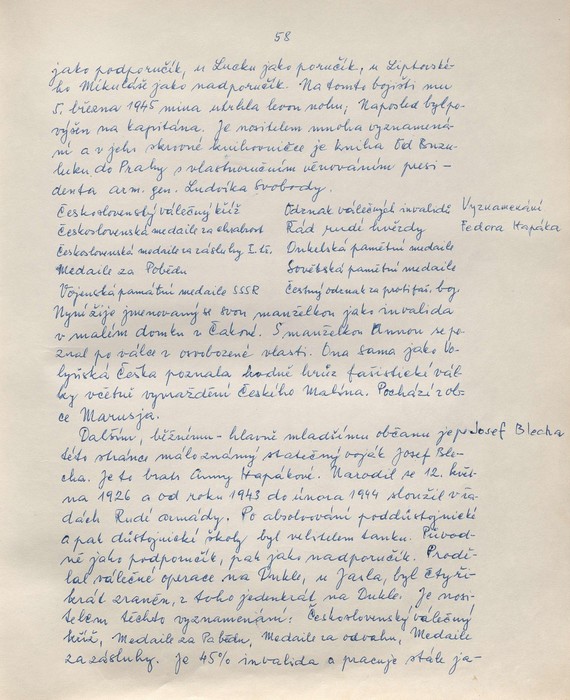 58
jako podporučík, u Lucku jako poručík, u Liptovské-
ho Mikuláše jako nadporučík. Na tomto bojišti mu
5. března 1945 mina utrhla levou nohu; Naposled byl po-
výšen na kapitána. Je nositelem mnoha vyznamená-
ní a v jeho skrovné knihovničce je kniha Od Buzu-
luku do Prahy s vlastnoručním věnováním presi-
denta arm. gen. Ludvíka Svobody.
Československý válečný kříž Odznak válečných invalidů Vyznamenání
Československá medaile za chrabrost Řád rudé hvězdy Fedora Hapáka
Československá medaile za zásluhy I. st. Dukelská pamětní medaile
Medaile za Pobědu Sovětská pamětní medaile
Vojenská památní medaile SSSR Čestný odznak za protifaš. boj
Nyní žije jmenovaný se svou manželkou jako invalida
v malém domku v Čakově. S manželkou Annou se po-
znal po válce v osvobozené vlasti. Ona sama jako Vo-
lyňská Češka poznala hodně hrůz fašistické vál-
ky včetně vyvraždění Českého Malína. Pochází z ob-
ce Marusja.
Dalším, běžnému - hlavně mladšímu občanu je po Josef Blecha
této stránce málo známý statečný voják Josef Ble-
cha. Je to bratr Anny Hapákové. Narodil se 12. květ-
na 1926 a od roku 1943 do února 1944 sloužil v řa-
dách Rudé armády. Po absolvování poddůstojnické
a pak důstojnické školy byl velitelem tanku. Původ-
ně jako podporučík, pak jako nadporučík. Proдě-
lal válečné operace na Dukle, u Jasla, byl čtyři-
krát zraněn, z toho jedenkrát na Dukle. Je nosi-
telem těchto vyznamenání: Československý válečný
kříž, Medaile za Pobědu, Medaile za odvahu, Medaile
za zásluhy. Je 45% invalida a pracuje stále ja-